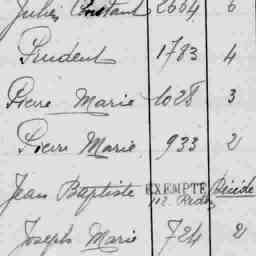 Jules Constant 2664 6
Prudent 1783 4
Pierre Marie 1028 3
Pierre Marie 933 2
Jean Baptiste EXEMPTÉ
Joseph Marie 724 2